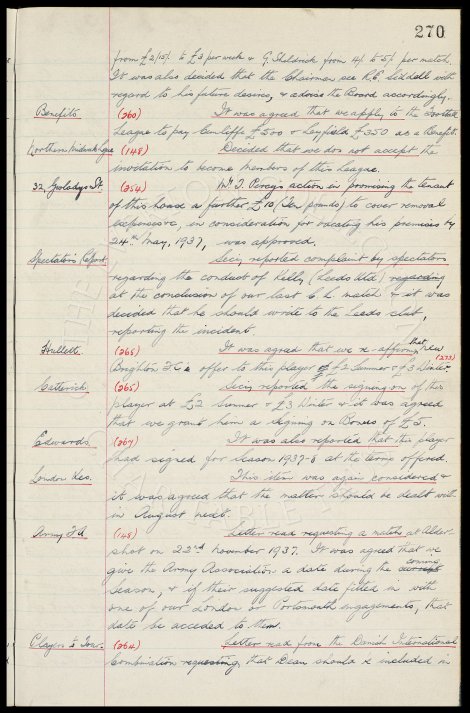 270
from £2/15/- to £3 per week & G. Sheldrick from 4/- to 5/- per match.
It was also decided that the Chairman see R.E. Liddell with
regard to his future desires, & advise the Board accordingly.
Benefits (260) It was agreed that we apply to the Football
League to pay Cunliffe £500 & Leyfield £350 as a Benefit.
Northern Midweek League (148) Decided that we do not accept the
invitation to become members of this League.
32, Gwladys St. (254) Mr. T. Percy's action in promising the tenant
of this house a further £10 (Ten pounds) to cover removal
expenses, in consideration for vacating his premises by
24th May, 1937, was approved.
Spectators Report. Secy. reported complaint by spectators
regarding the conduct of Kelly (Leeds Utd) regarding
at the conclusion of our last C.L. match & it was
decided that he should write to the Leeds club,
reporting the incident.
Hullett. (265) It was agreed that we re-affirm that new (273)
Brighton F.C's offer to this player of £2 Summer & £3 Winter.
Catterick. (265) Secy. reported the signing on of this
player at £2 Summer & £3 Winter & it was agreed
that we grant him a signing on Bonus of £5.
Edwards. (267) It was also reported that this player
had signed for season 1937-8 at the terms offered.
London Hos. This item was again considered &
it was agreed that the matter should be dealt with
in August next.
Army F.A. (145) Letter read requesting a match at Alder-
shot on 22nd November 1937. It was agreed that we
give the Army Association a date during the coming
season, & if their suggested date fitted in with
one of our London or Portsmouth engagements, that
date be acceded to them.
Players to Tour. (264) Letter read from the Danish International
Combination requesting that Dean should be included in